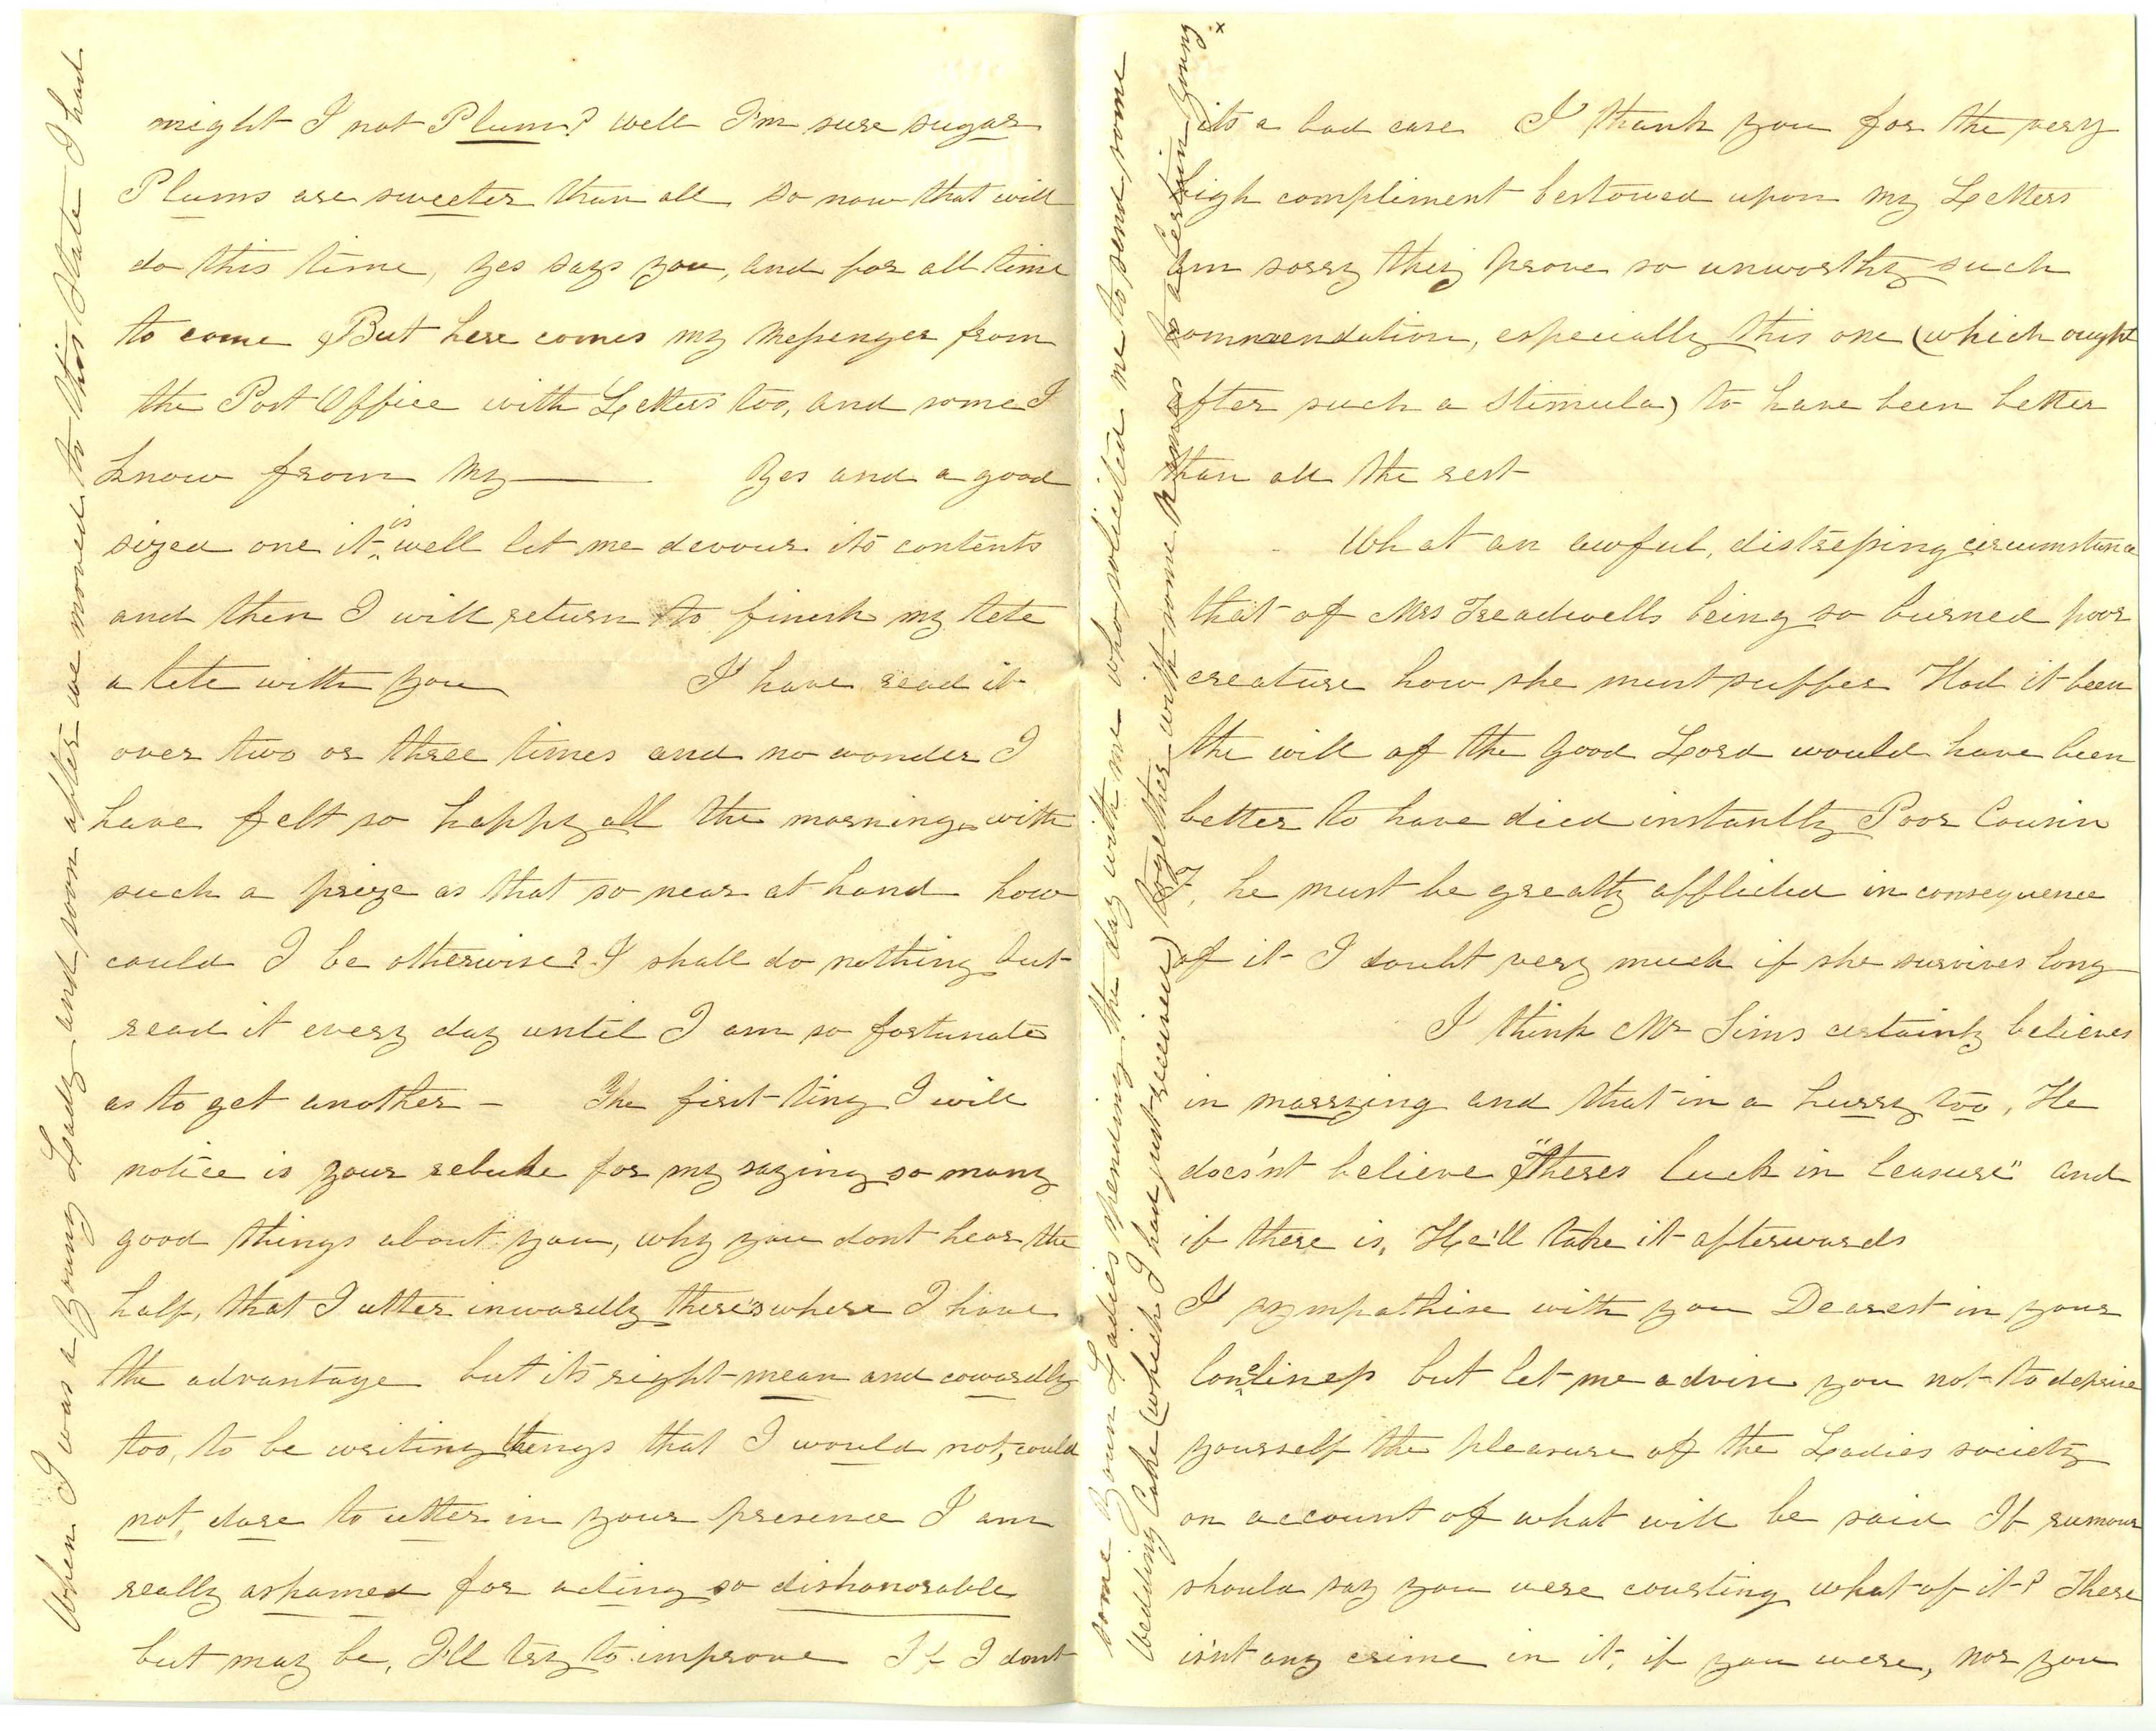 might I not Plum? well I'm sure sugar
Plums are sweeter than all so now that will
do this time, yes says you, and for all time
to come, But here comes my Messenger from
the Post Office with Letters too, and some I
know from my — Yes and a good
sized one it is well let me devour its contents
and then I will return to finish my tete
a tete with you I have read it
over two or three times and no wonder I
have felt so happy all the morning, with
such a prize as that so near at hand how
could I be otherwise? I shall do nothing but
read it every day until I am so fortunate
as to get another — The first ting I will
notice is your rebuke for my saying so many
good things about you, why you dont hear the
half, that I utter inwardly there's where I have
the advantage but its right mean and cowardly
too, to be writing things that I would not, could
not, dare to utter in your presence I am
really ashamed for acting so dishonorable
but may be, I'll try to improve If I dont
When I was a young Lady and soon after we moved to this State I had
its a bad case I thank you for the very
high compliment bestowed upon my Letters
am sorry they prove so unworthy such
commendation, especially this one (which ought
after such a Stimula) to have been better
than all the rest
What an awful, distressing circumstance
that of Mrs Treadwells being so burned poor
creature how she must suffer Had it been
the will of the Good Lord would have been
better to have died instantly Poor Cousin
T, he must be greatly afflicted in consequence
of it I doubt very much if she survives long
I think Mr Sims certainly believes
in marrying and that in a hurry too, He
does'nt believe "theres luck in leasure" and
if there is, He'll take it afterwards
I sympathise with you Dearest in your
loneliness but let me advise you not to deprive
yourself the pleasure of the Ladies society
on account of what will be said If rumour
should say you were courting what of it? There
is'nt any crime in it, if you were, nor you
some Young Ladies spending the day with me who solicited me to send some
Wedding Cake (which I have just received) together with some Names to a certain young x